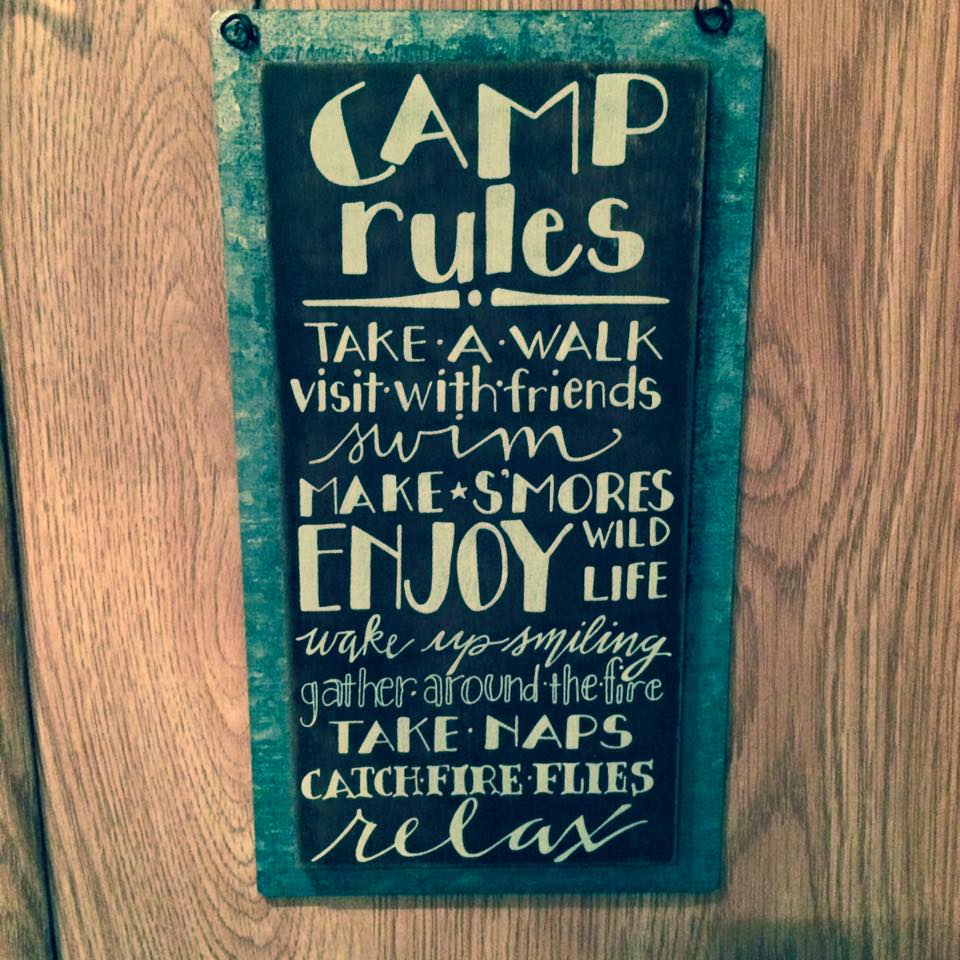 CAMP
rules
TAKE·A·WALK
visit·with·friends
swim
MAKE★S'MORES
ENJOY WILD
LIFE
wake up smiling
gather·around·the·fire
TAKE·NAPS
CATCH·FIRE·FLIES
relax